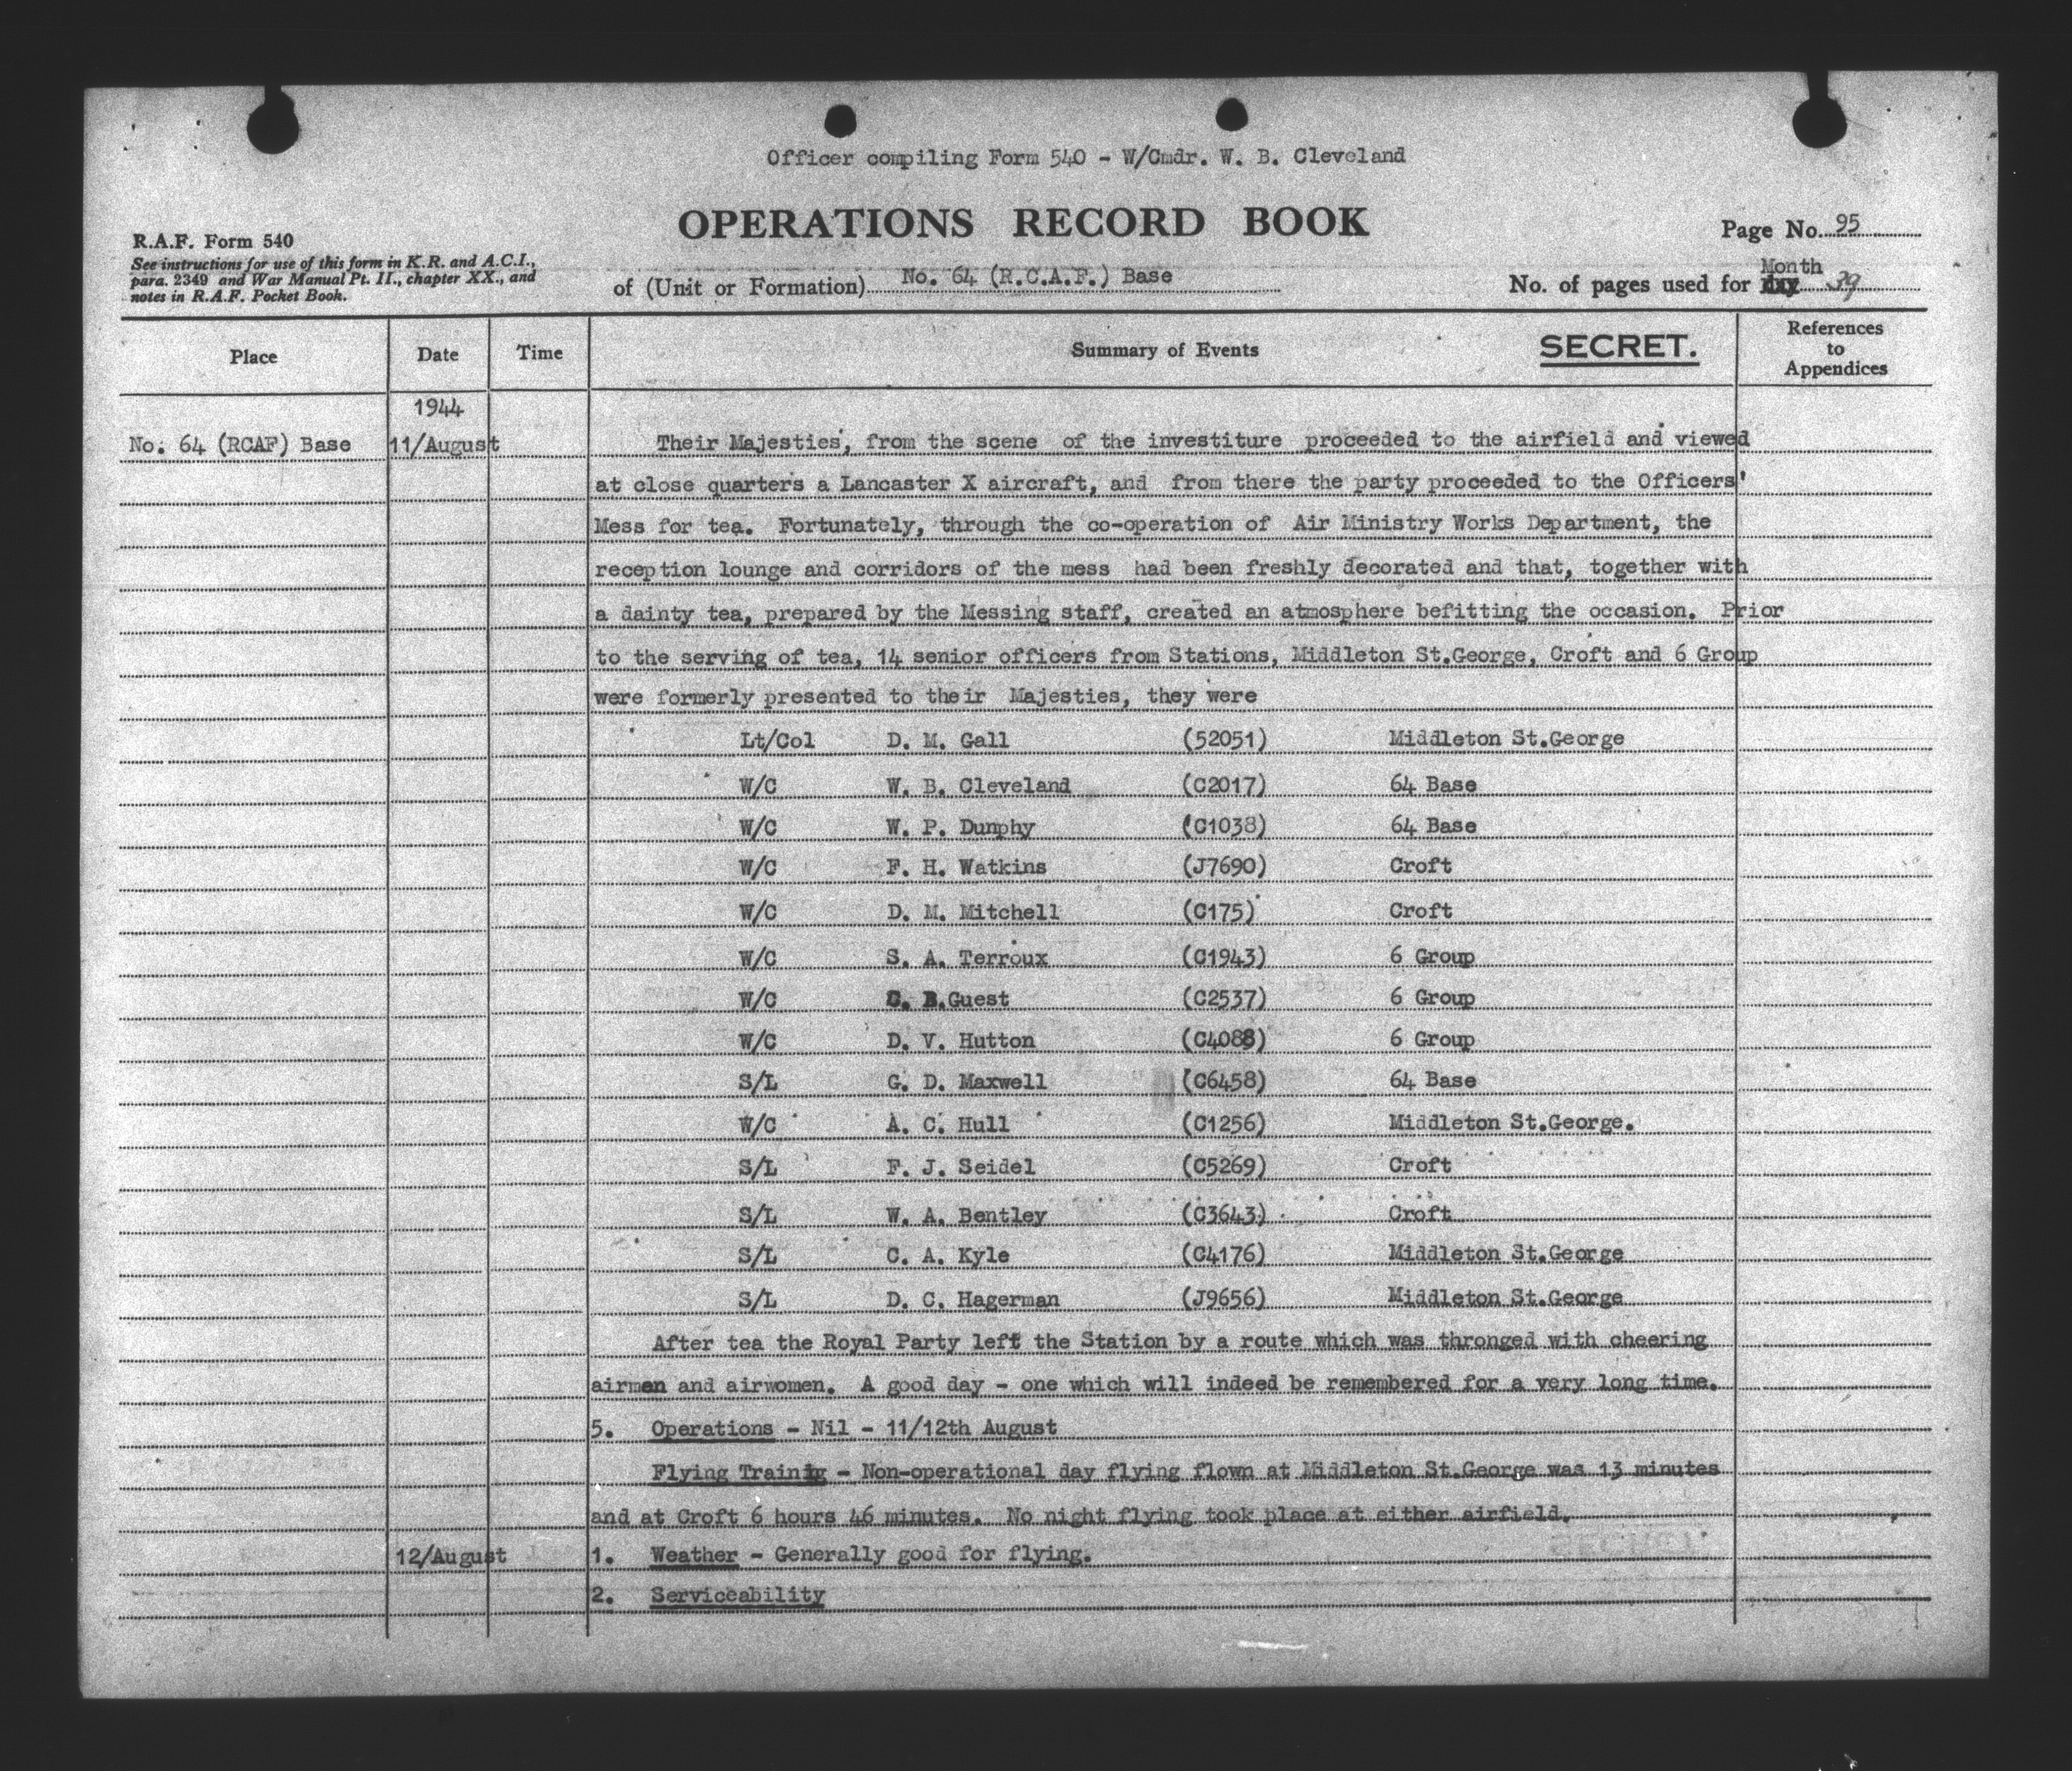 Officer compiling Form 540 - W/Cmdr. W. B. Cleveland
OPERATIONS RECORD BOOK
Page No. 95
R.A.F. Form 540
See instructions for use of this form in K.R. and A.C.I.,
para. 2349 and War Manual Pt. II., chapter XX., and
notes in R.A.F. Pocket Book.
of (Unit or Formation) No. 64 (R.C.A.F.) Base
No. of pages used for day Month 39
Place Date Time Summary of Events SECRET. References to Appendices
1944
No. 64 (RCAF) Base 11/August Their Majesties, from the scene of the investiture proceeded to the airfield and viewed
at close quarters a Lancaster X aircraft, and from there the party proceeded to the Officers'
Mess for tea. Fortunately, through the co-operation of Air Ministry Works Department, the
reception lounge and corridors of the mess had been freshly decorated and that, together with
a dainty tea, prepared by the Messing staff, created an atmosphere befitting the occasion. Prior
to the serving of tea, 14 senior officers from Stations, Middleton St.George, Croft and 6 Group
were formerly presented to their Majesties, they were
Lt/Col D. M. Gall (52051) Middleton St.George
W/C W. B. Cleveland (C2017) 64 Base
W/C W. P. Dunphy (C1038) 64 Base
W/C F. H. Watkins (J7690) Croft
W/C D. M. Mitchell (C175) Croft
W/C S. A. Terroux (C1943) 6 Group
W/C Guest (C2537) 6 Group
W/C D. V. Hutton (C4088) 6 Group
S/L G. D. Maxwell (C6458) 64 Base
W/C A. C. Hull (C1256) Middleton St.George.
S/L F. J. Seidel (C5269) Croft
S/L W. A. Bentley (C3643) Croft
S/L C. A. Kyle (C4176) Middleton St.George
S/L D. C. Hagerman (J9656) Middleton St.George
After tea the Royal Party left the Station by a route which was thronged with cheering
airmen and airwomen. A good day - one which will indeed be remembered for a very long time.
5. Operations - Nil - 11/12th August
Flying Trainig - Non-operational day flying flown at Middleton St.George was 13 minutes
and at Croft 6 hours 46 minutes. No night flying took place at either airfield.
12/August 1. Weather - Generally good for flying.
2. Serviceability